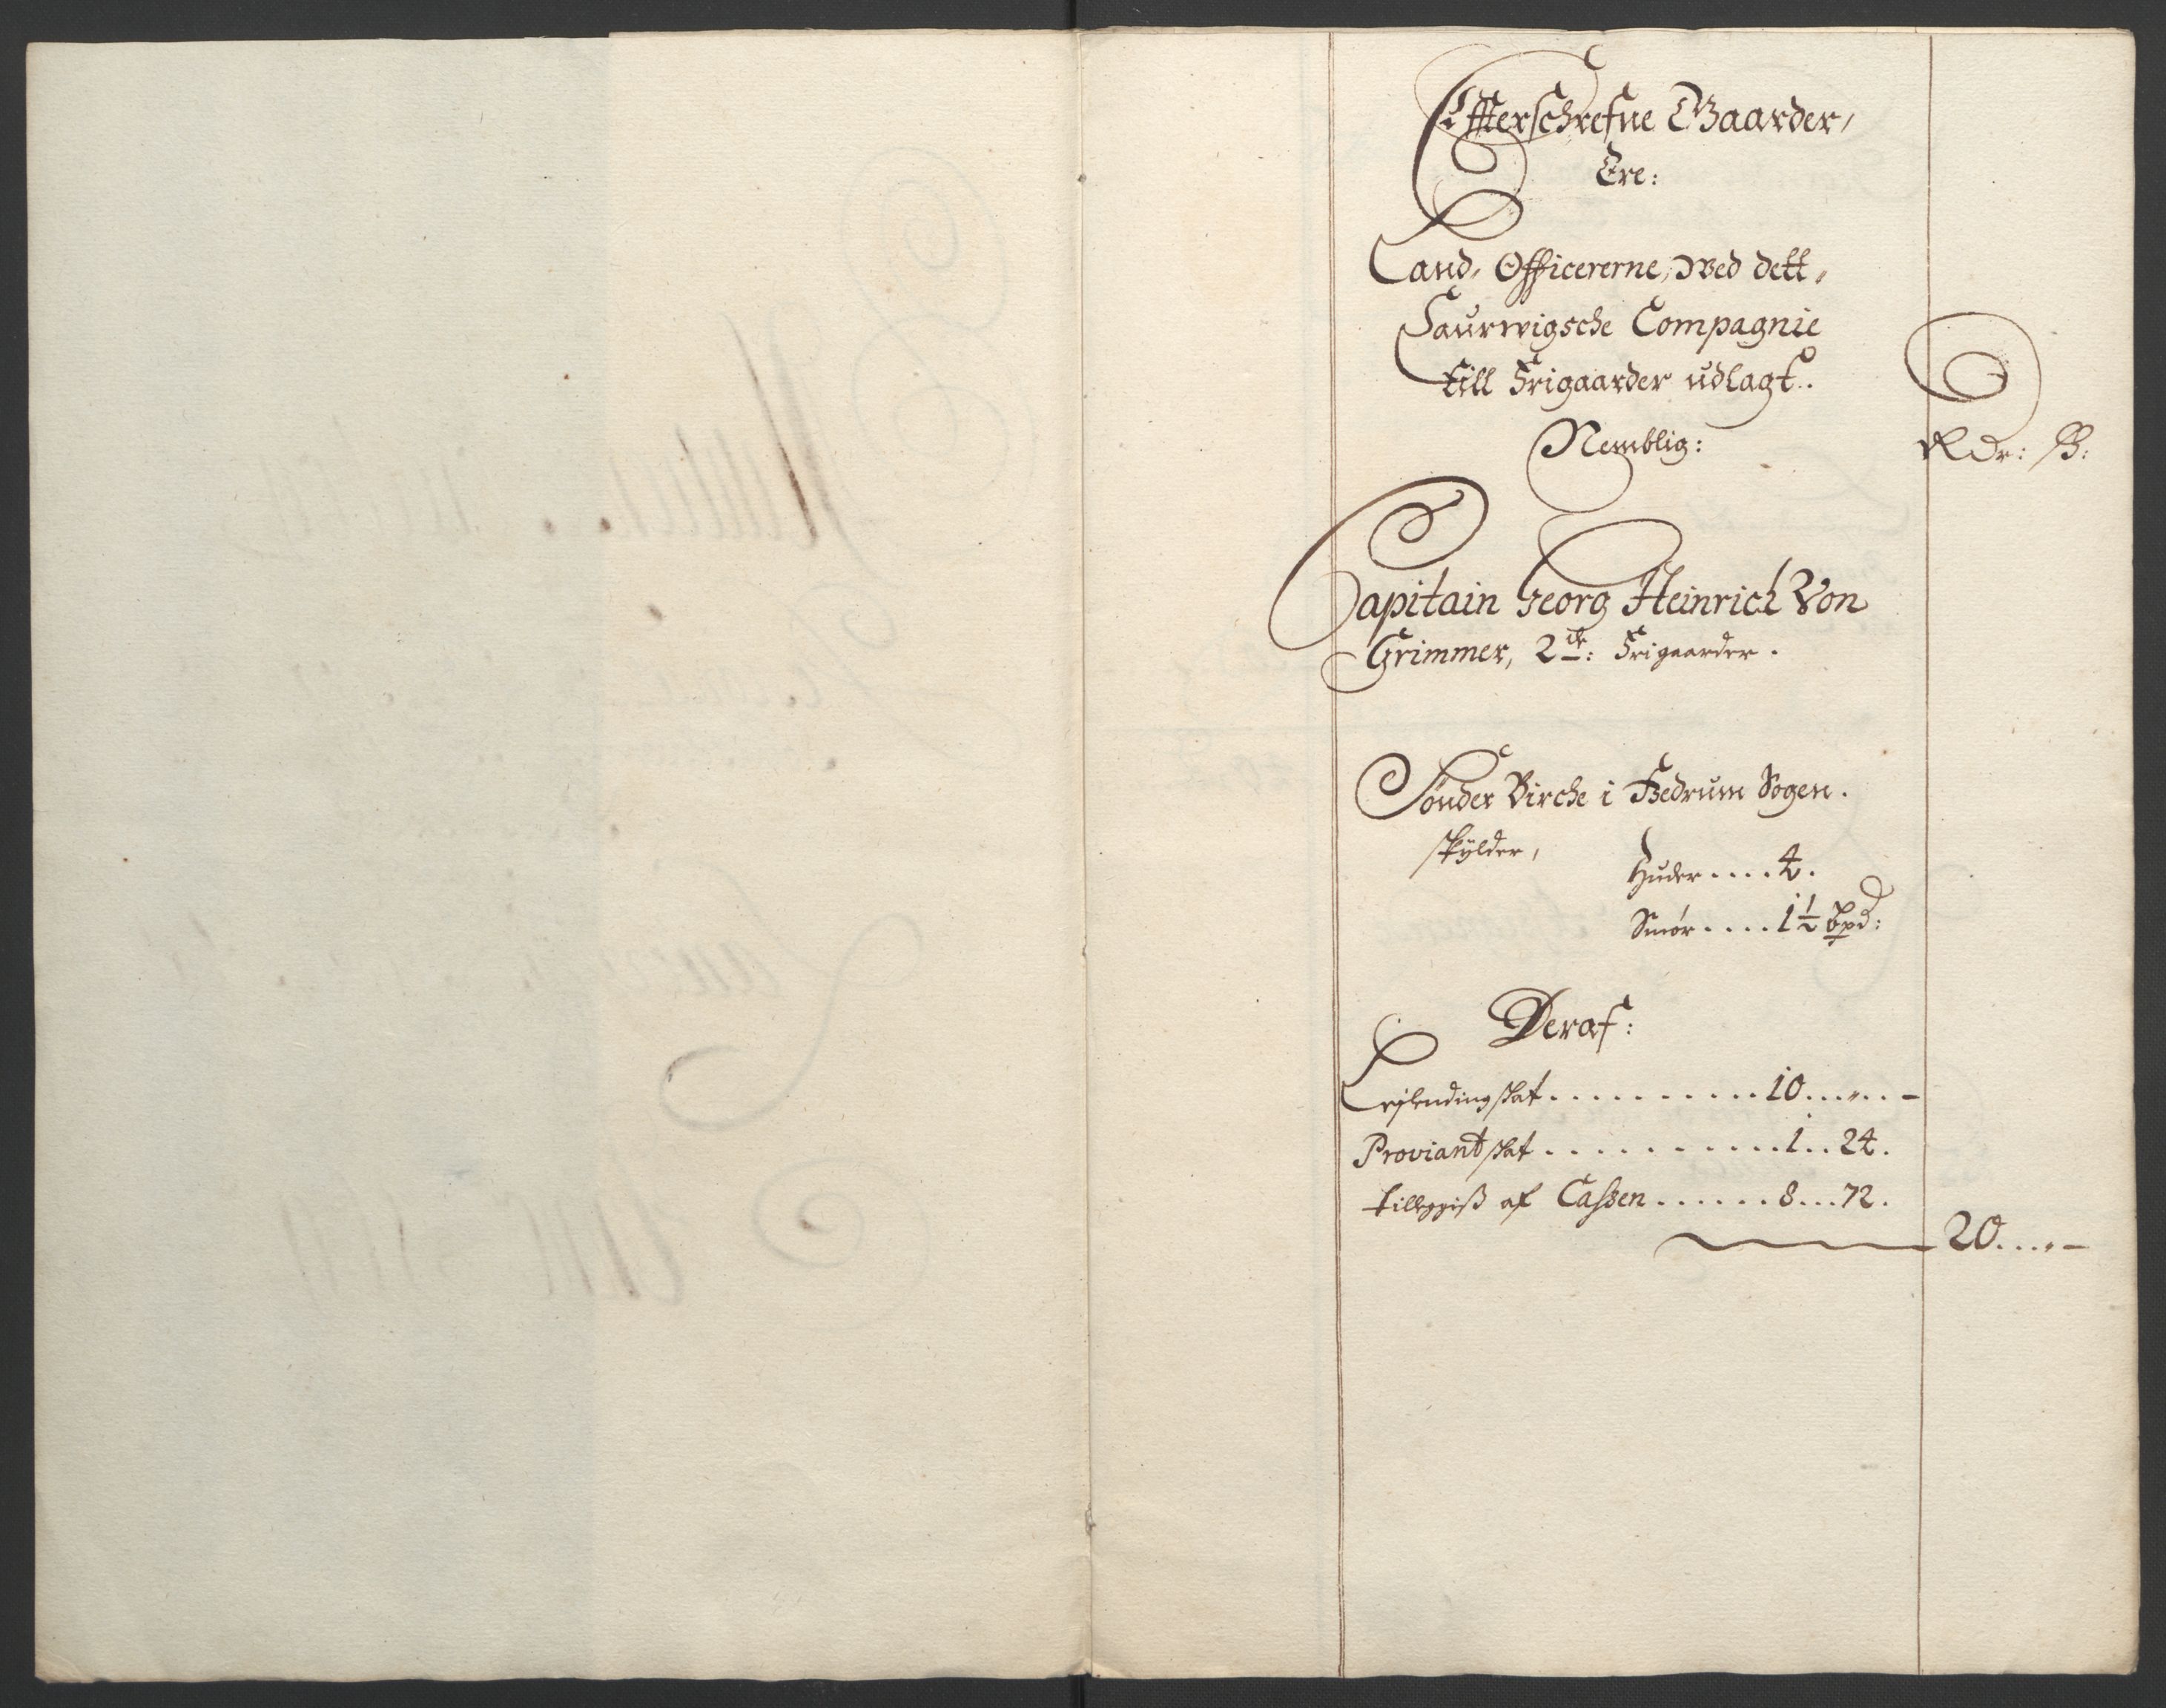 Effterschrefne Gaarder,
Ere:
Land, Officererne, wed dett,
Laurwigsche Compagnie
till Frigaarder udlagt.
Nemblig:
Rdr: ß:
Capitain Georg Heinrich Von
Grimmer, 2de: Frigaarder.
Sönder Birche i Hedrum Sogen.
skylder,
Huder .... 4.
Smör .... 1½ Bpd:
Deraf:
Leylendingskat .......... 10...„..-
Proviantskat .......... 1..24.
tilleggiß af Caßen ...... 8...72.
20...„-